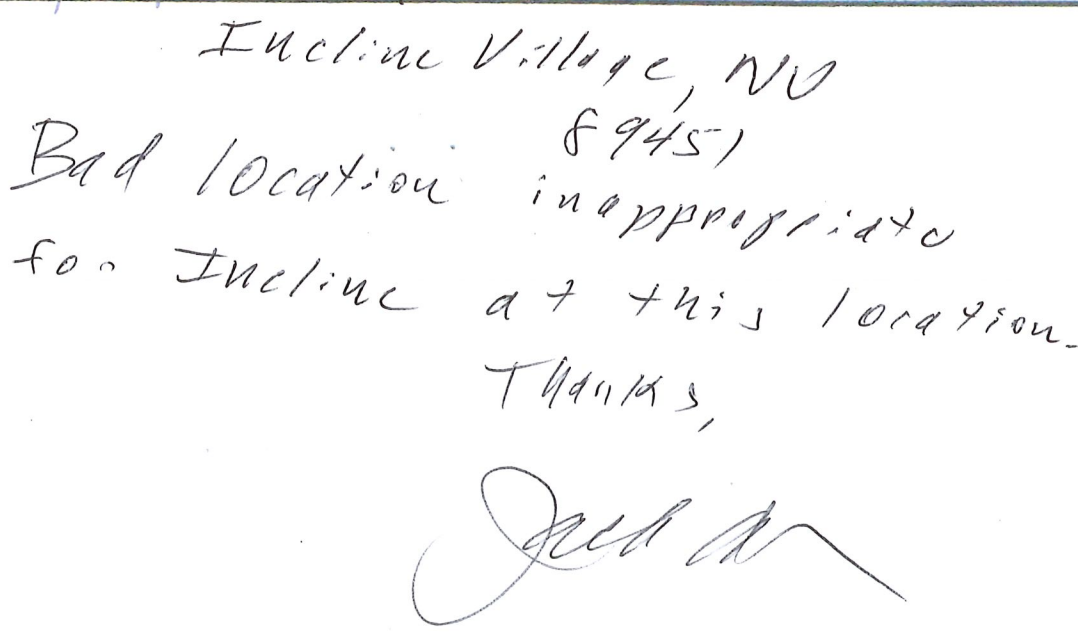 Incline Village, NV
89451
Bad location inappropriate
for Incline at this location.
Thanks,
Jack